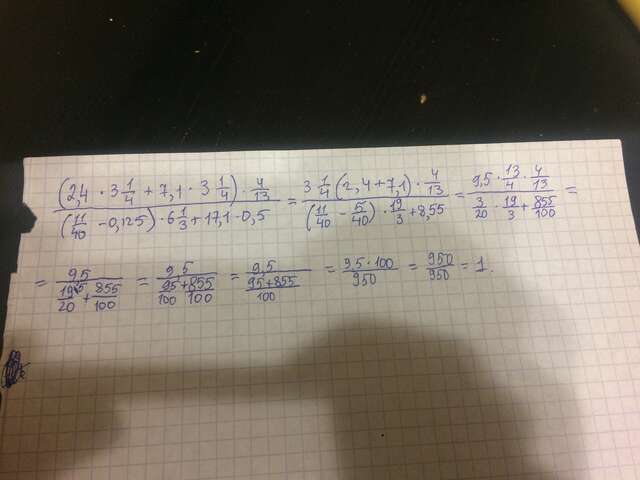 (2,4 · 3 1/4 + 7,1 · 3 1/4) · 4/13 / (11/40 − 0,125) · 6 1/3 + 17,1 · 0,5 = 3 1/4 (2,4 + 7,1) · 4/13 / (11/40 − 5/40) · 19/3 + 8,55 = 9,5 · 13/4 · 4/13 / 3/20 · 19/3 + 855/100 =
= 9,5 / 19/20 + 855/100 = 9,5 / 95/100 + 855/100 = 9,5 / 95+855/100 = 9,5 · 100 / 950 = 950/950 = 1.